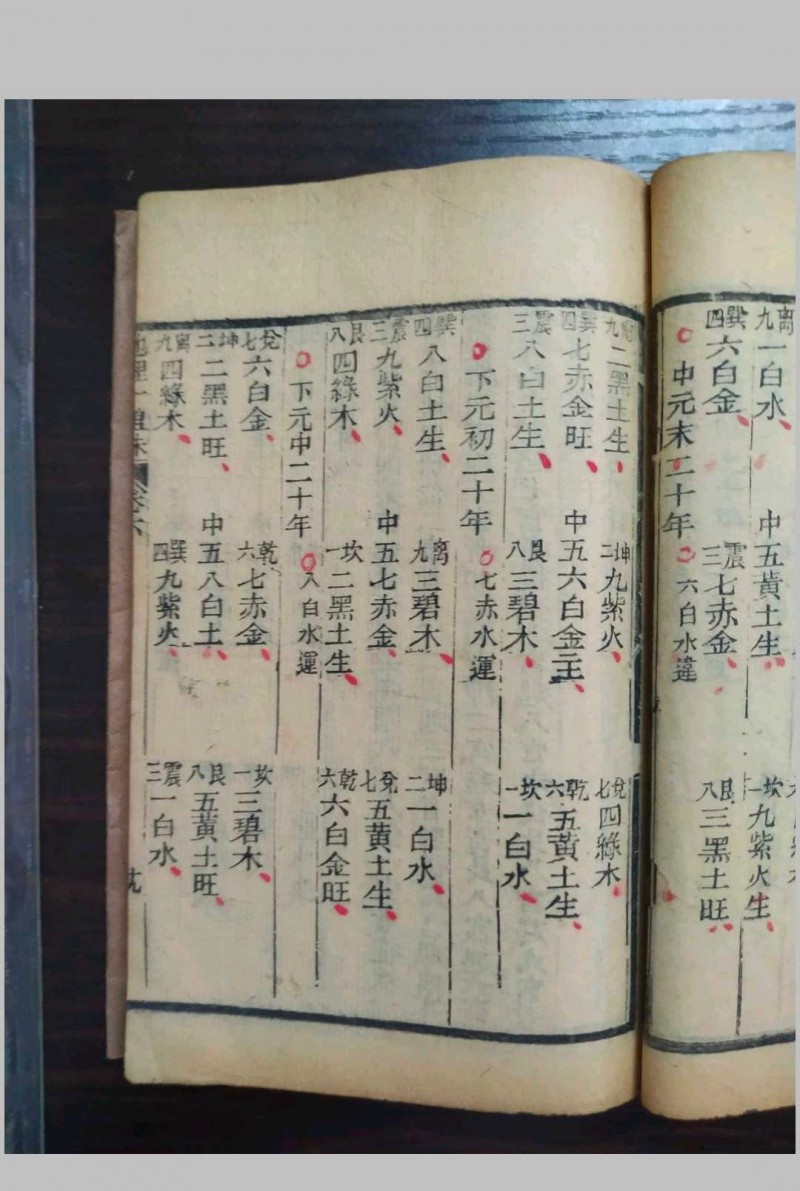 離九一白水、 中五黃土生、 坎一九紫火生、
巽四六白金、 震三七赤金、 艮八三黑土旺、
中元末二十年 六白水違
離九二黑土生、 坤二九紫火、 兌七四綠木、
巽四七赤金旺、 中五六白金主、 乾六五黃土生、
震三八白土生、 艮八三碧木、 坎一一白水、
下元初二十年 七赤水運
巽四八白土生、 離九三碧木、 坤二一白水、
震三九紫火、 中五七赤金、 兌七五黃土生、
艮八四綠木、 坎一二黑土生、 乾六六白金旺、
下元中二十年 八白水運
兌七六白金、 乾六七赤金、 坎一三碧木、
坤二二黑土旺、 中五八白土、 艮八五黃土旺、
離九四綠木、 巽四九紫火、 震三一白水、
地理一貫 卷六